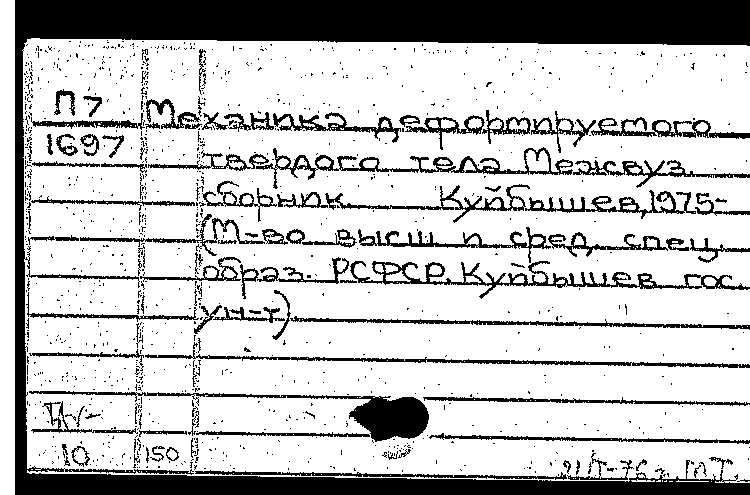 П7 Механика деформируемого
1697 твердого тела. Межвуз.
сборник. Куйбышев, 1975-
(М-во высш и сред. спец.
образ. РСФСР. Куйбышев гос.
ун-т).
10 150